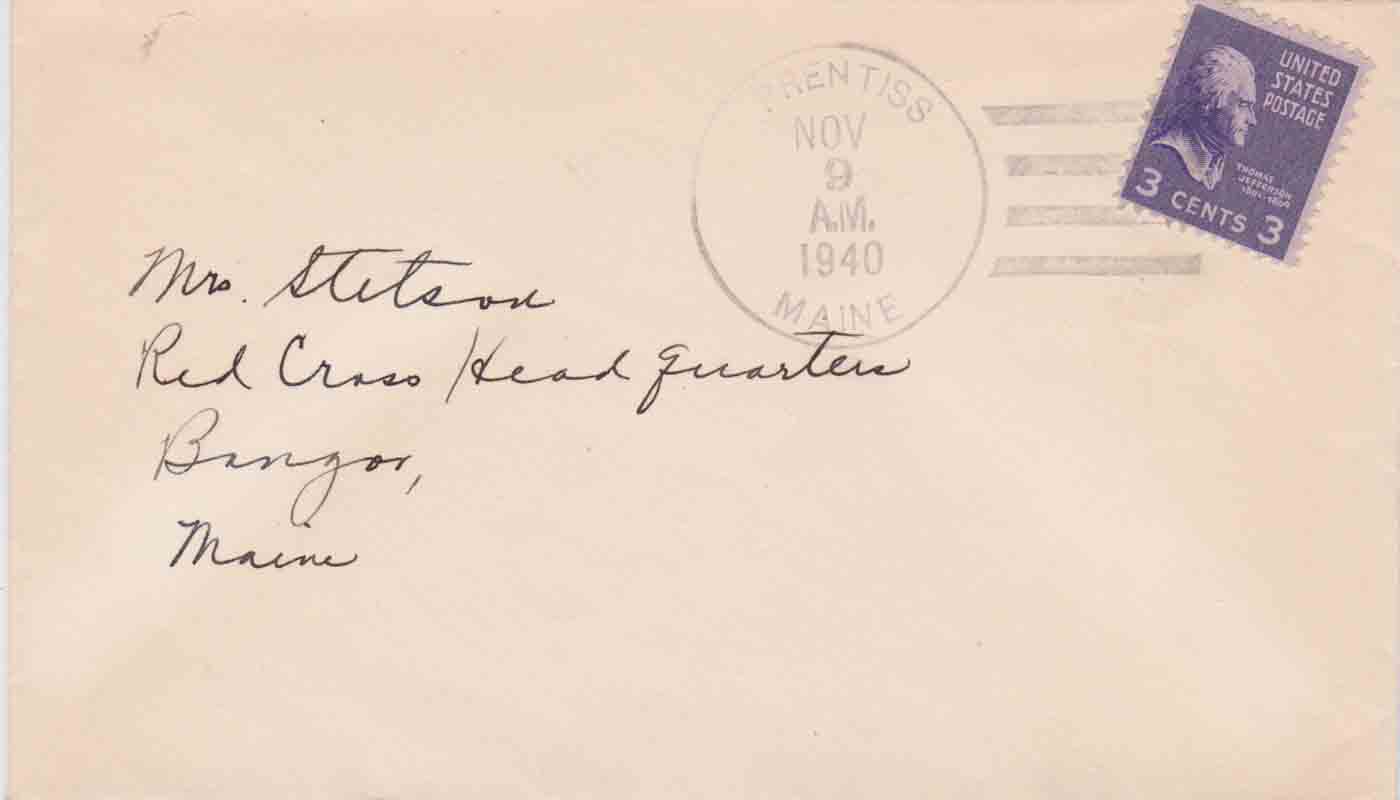 PRENTISS
NOV
9
A.M.
1940
MAINE
UNITED
STATES
POSTAGE
THOMAS
JEFFERSON
1801-1809
3 CENTS 3
Mrs. Stetson
Red Cross Head quarters
Bangor,
Maine